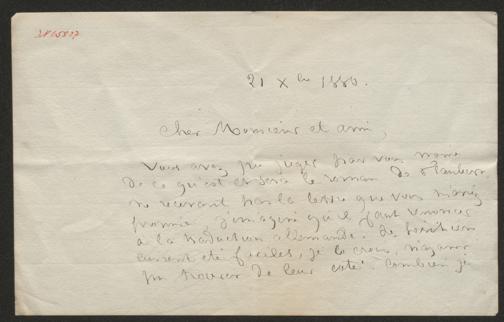 21 Xbre 1880.
Cher Monsieur et ami,
Vous avez pu juger par vous même
de ce qu'est et sera le roman de Flaubert
ne recevant pas la lettre que vous m'aviez
promise j'imagine qu'il faut renoncer
à la traduction allemande. Les
eussent été faciles, je le crois, n'ayant
pu trouver de leur côté. Combien je